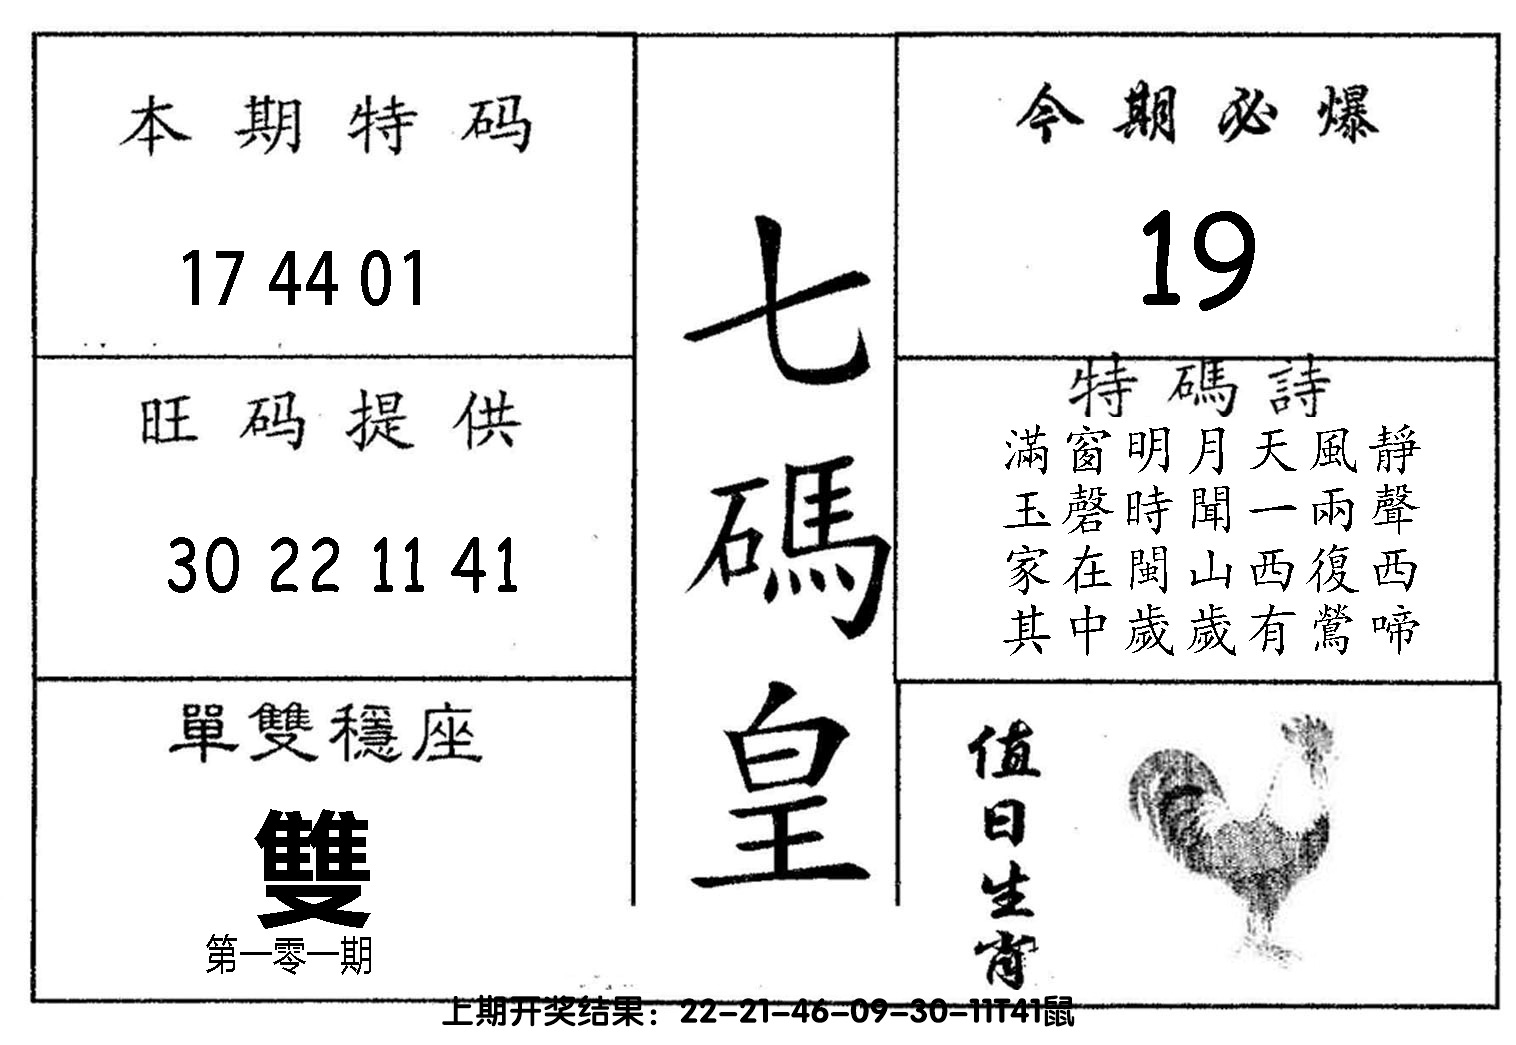 本期特码
17 44 01
旺码提供
30 22 11 41
單雙穩座
雙
第一零一期
七碼皇
今期必爆
19
特碼詩
滿窗明月天風靜
玉磬時聞一兩聲
家在閩山西復西
其中歲歲有鶯啼
值日生肖
上期开奖结果：22-21-46-09-30-11T41鼠